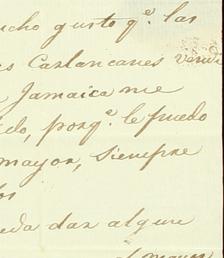 ucho gusto qe. las
es Castancanes veni
Jamaica me
do, porqe. le puedo
mayor, siempre
os
eda dar algun